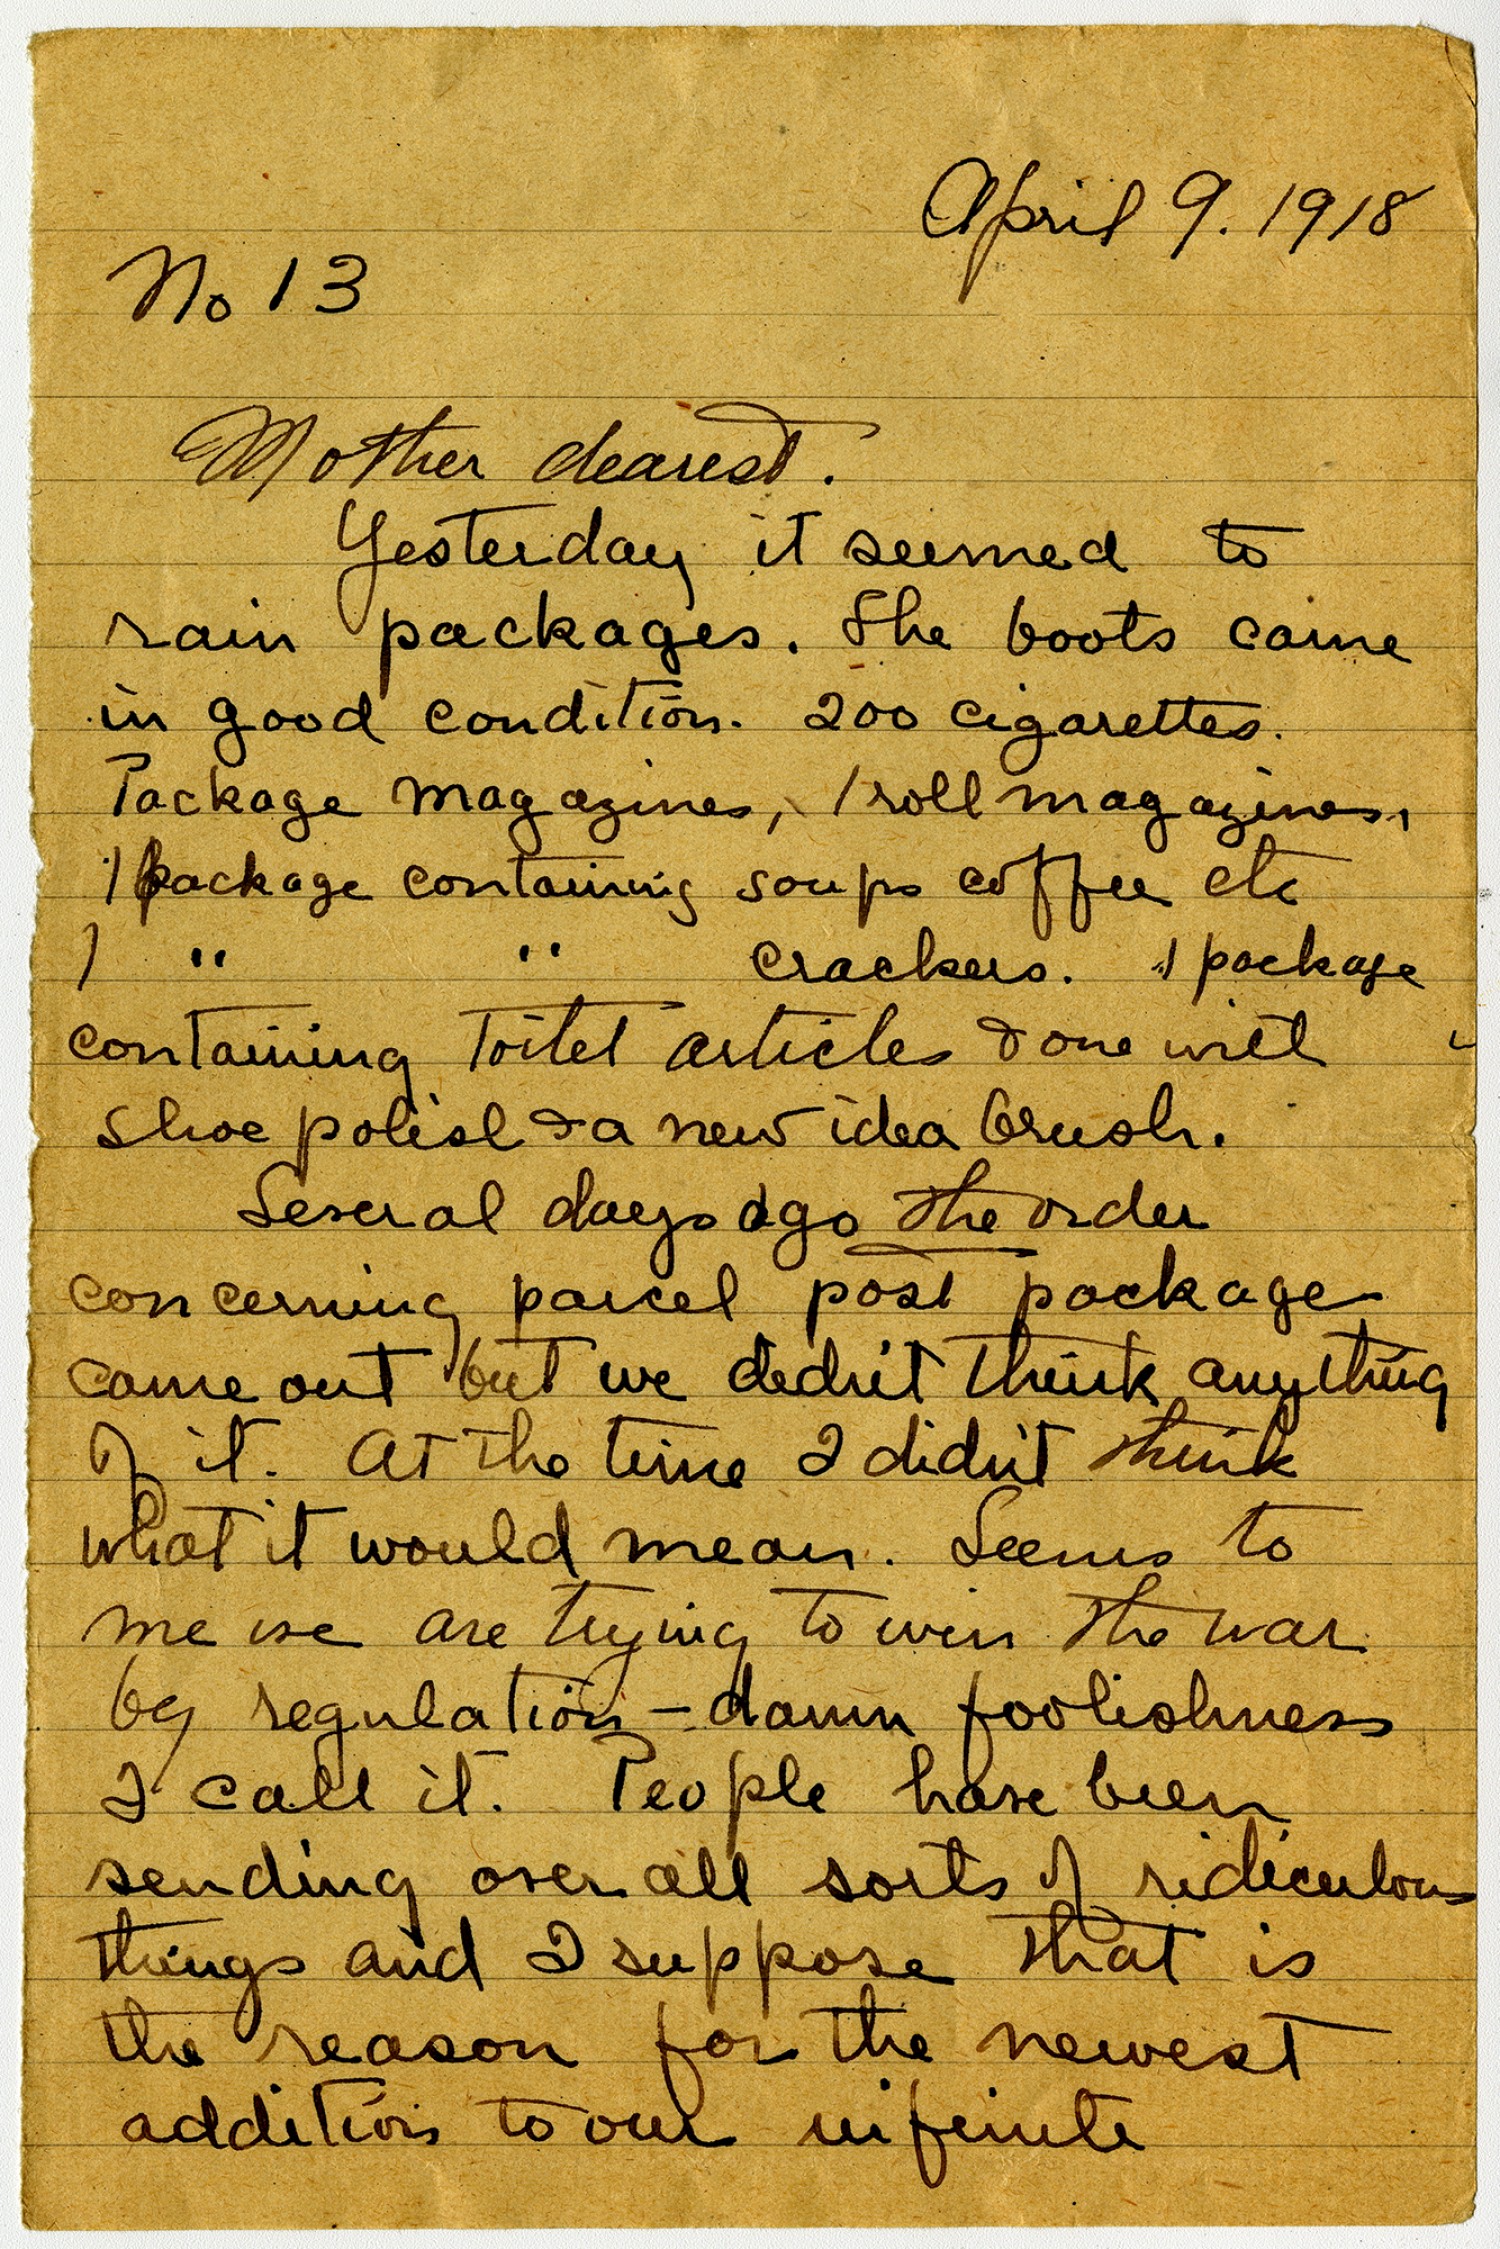 April 9. 1918
No 13
Mother dearest.
Yesterday it seemed to
rain packages. The boots came
in good condition. 200 cigarettes.
Package magazines, 1 roll magazines,
1 package containing soups coffee etc
1 " " crackers. 1 package
containing toilet articles & one with
shoe polish & a new idea brush.
Several days ago the order
concerning parcel post package
came out but we didn't think anything
of it. At the time I didn't think
what it would mean. Seems to
me we are trying to win the war
by regulation - damn foolishness
I call it. People have been
sending over all sorts of ridiculous
things and I suppose that is
the reason for the newest
addition to our infinite